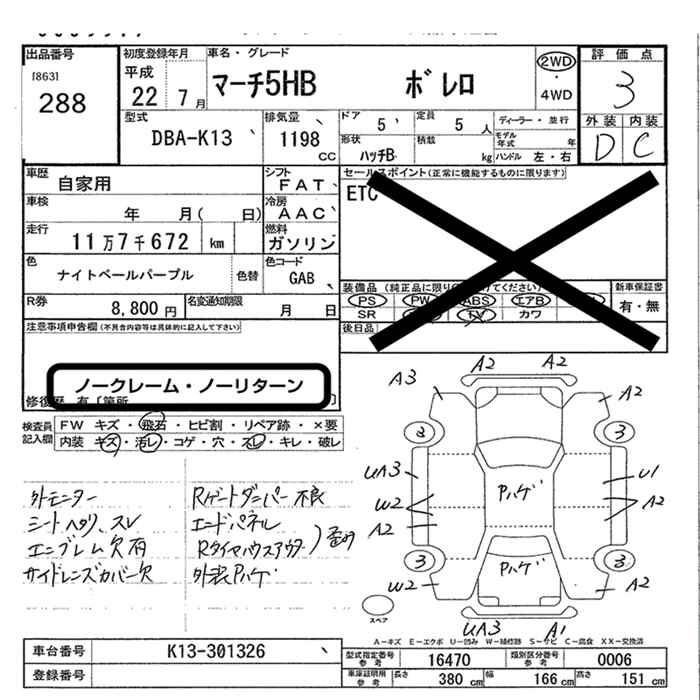 出品番号
[863]
288
初度登録年月
平成
22 7月
車名・グレード
マーチ5HB ボレロ
2WD
・
4WD
評価点
3
外装 内装
D C
型式
DBA-K13
排気量
1198 cc
ドア
5
定員
5 人
ディーラー・並行
モデル年式 年
形状
ハッチB
積載
kg
ハンドル 左・右
車歴
自家用
シフト
FAT
車検
年 月( 日)
冷房
AAC
走行
11万7千672 km
燃料
ガソリン
色
ナイトベールパープル
色替
色コード
GAB
R券
8,800円
名変通知期限
月 日
セールスポイント(正常に機能するものに限ります)
ETC
装備品
PS PW ABS エアB
SR TV カワ
新車保証書
有・無
後日品
注意事項申告欄(不具合内容等は具体的に記入して下さい)
ノークレーム・ノーリターン
修復歴 有〔箇所
検査員記入欄
FW キズ・飛石・ヒビ割・リペア跡・×要
内装 キズ・汚レ・コゲ・穴・スレ・キレ・破レ
外モニター
シートヘタリ、スレ
エンブレム欠有
サイドレンズカバー欠
Rゲートダンパー不良
エンドパネル
Rタイヤハウスアウター
外装Pハゲ
A3 A2 A2 A2
3 3
UA3 Pハゲ U1
W2 A2
A2
3 Pハゲ 3
W2 A2
スペア
UA3 A1
A−キズ E−エクボ U−凹み W−補修跡 S−サビ C−腐食 XX−交換済
車台番号
K13-301326
登録番号
型式指定番号
参考
16470
類別区分番号
参考
0006
車庫証明用
参考
長さ
380 cm
幅
166 cm
高さ
151 cm